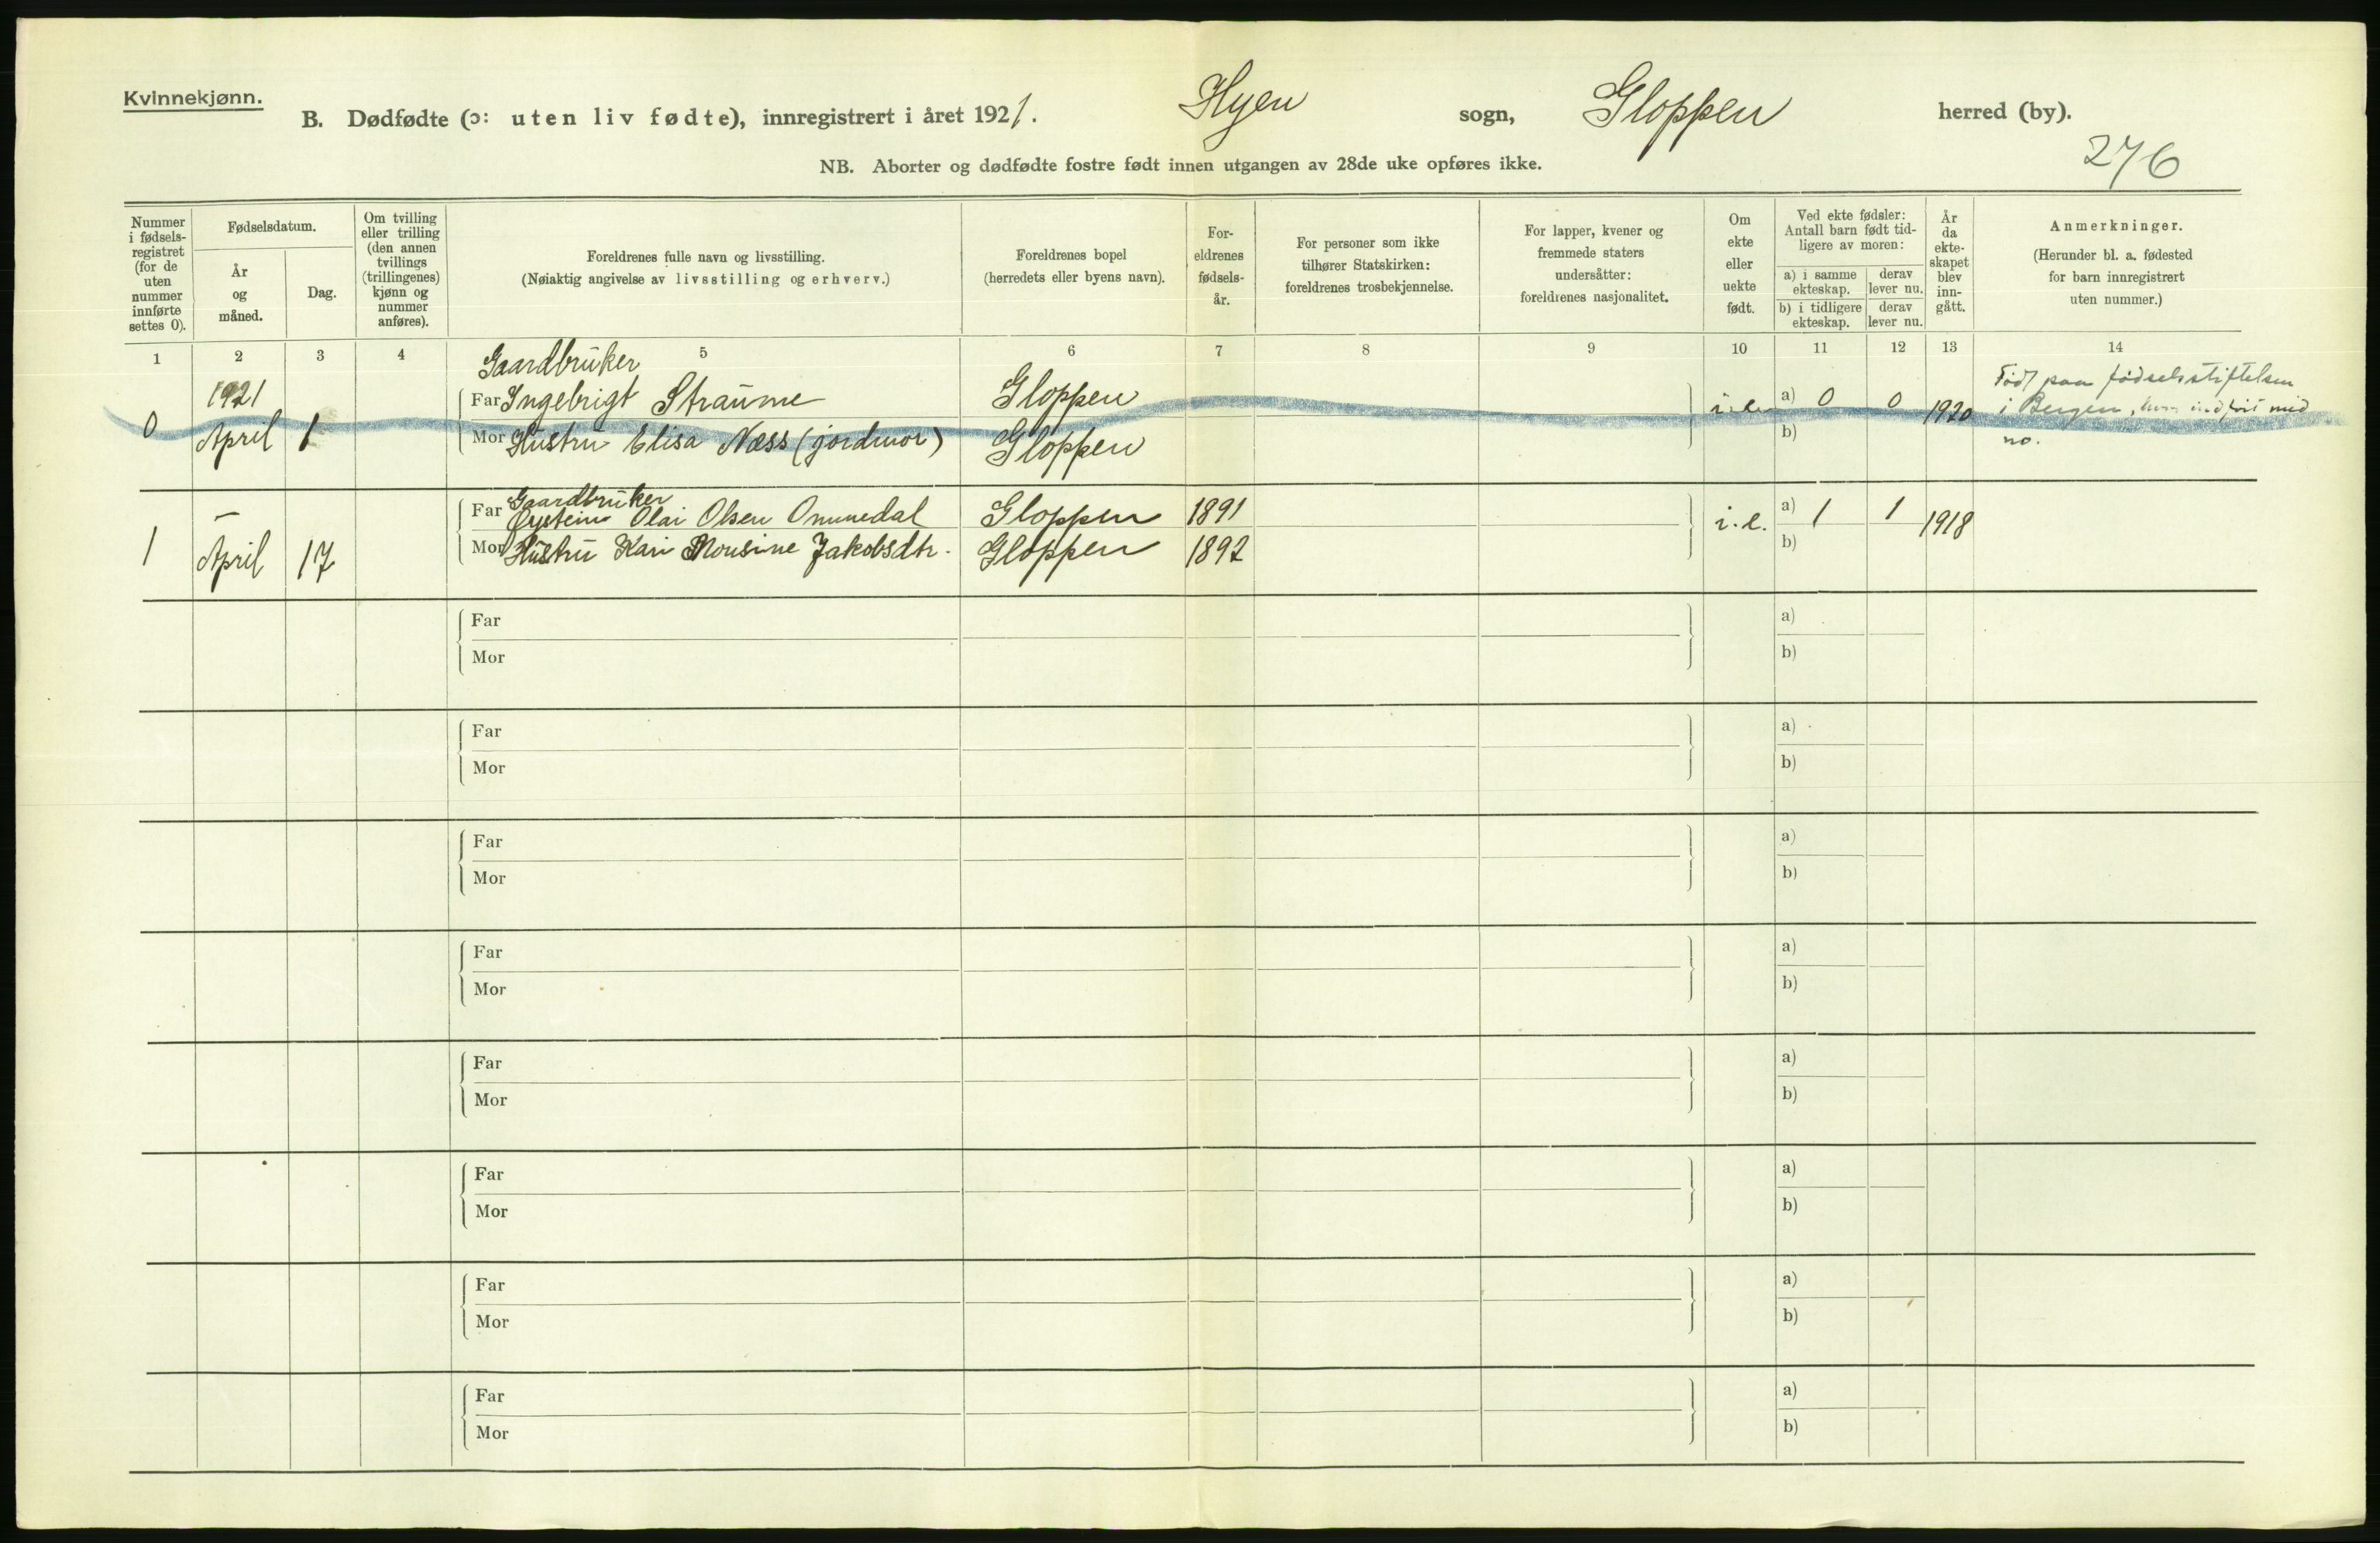 Kvinnekjønn.
B. Dødfødte (ɔ: uten liv fødte), innregistrert i året 1921. Hyen sogn, Gloppen herred (by).
NB. Aborter og dødfødte fostre født innen utgangen av 28de uke opføres ikke.
276
Nummer i fødsels-registret (for de uten nummer innførte settes 0).
Fødselsdatum.
År og måned.
Dag.
Om tvilling eller trilling (den annen tvillings (trillingenes) kjønn og nummer anføres).
Foreldrenes fulle navn og livsstilling.
(Nøiaktig angivelse av livsstilling og erhverv.)
Foreldrenes bopel
(herredets eller byens navn).
For-eldrenes fødsels-år.
For personer som ikke tilhører Statskirken: foreldrenes trosbekjennelse.
For lapper, kvener og fremmede staters undersåtter: foreldrenes nasjonalitet.
Om ekte eller uekte født.
Ved ekte fødsler: Antall barn født tid-ligere av moren:
a) i samme ekteskap.
derav lever nu.
b) i tidligere ekteskap.
derav lever nu.
År da ekte-skapet blev inn-gått.
Anmerkninger.
(Herunder bl. a. fødested for barn innregistrert uten nummer.)
1 2 3 4 5 6 7 8 9 10 11 12 13 14
Gaardbruker
1921 Far Ingebrigt Straume Gloppen i.e. a) 0 0 1920 Født paa fødselsstiftelsen
0 April 1 Mor Hustru Elisa Næss (jordmor) Gloppen b) i Bergen, indført med
no.
Gaardbruker
– Far Øystein Olai Olsen Ommedal Gloppen 1891 i.e. a) 1 1 1918
1 April 17 Mor Hustru Kari Monsine Jakobsdtr. Gloppen 1892 b)
Far a)
Mor b)
Far a)
Mor b)
Far a)
Mor b)
Far a)
Mor b)
Far a)
Mor b)
Far a)
Mor b)
Far a)
Mor b)
Far a)
Mor b)